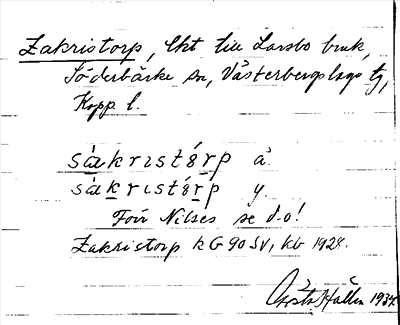 Zakristorp, lht till Larsbo bruk,
Söderbärke sn, Västerbergslags tg,
Kopp. l.
sàkristórp ä.
sàkristórp y.
Förr Nilses se d.o!
Zakristorp kG 90 SV, kb 1928.
Gösta Hallin 1934